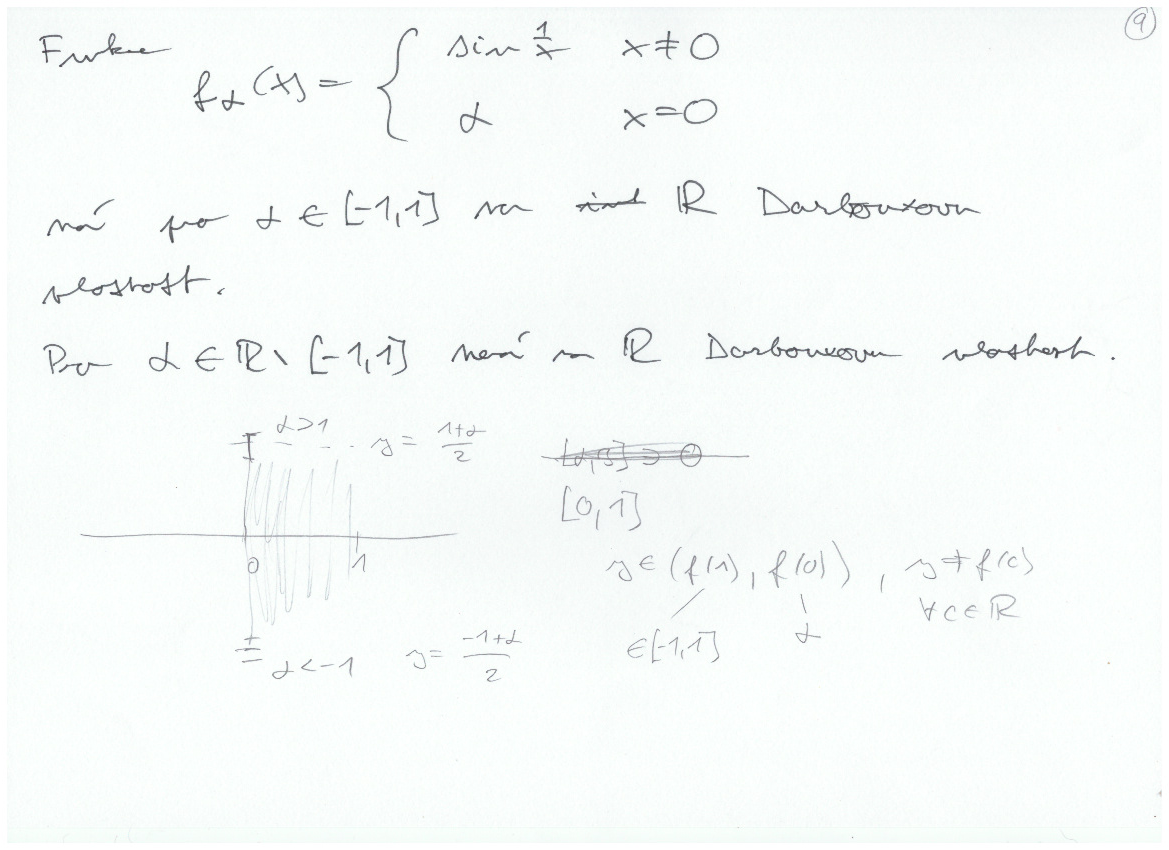 9
Funkce
f_α(x) = { sin 1/x x ≠ 0
α x = 0
má pro α ∈ [-1,1] na ℝ Darbouxovu
vlastnost.
Pro α ∈ ℝ \ [-1,1] nemá na ℝ Darbouxovu vlastnost.
α>1 y = (1+α)/2
[0,1]
0 1
y ∈ (f(1), f(0)), y ≠ f(c)
∀ c ∈ ℝ
∈ [-1,1] α
α < -1 y = (-1+α)/2